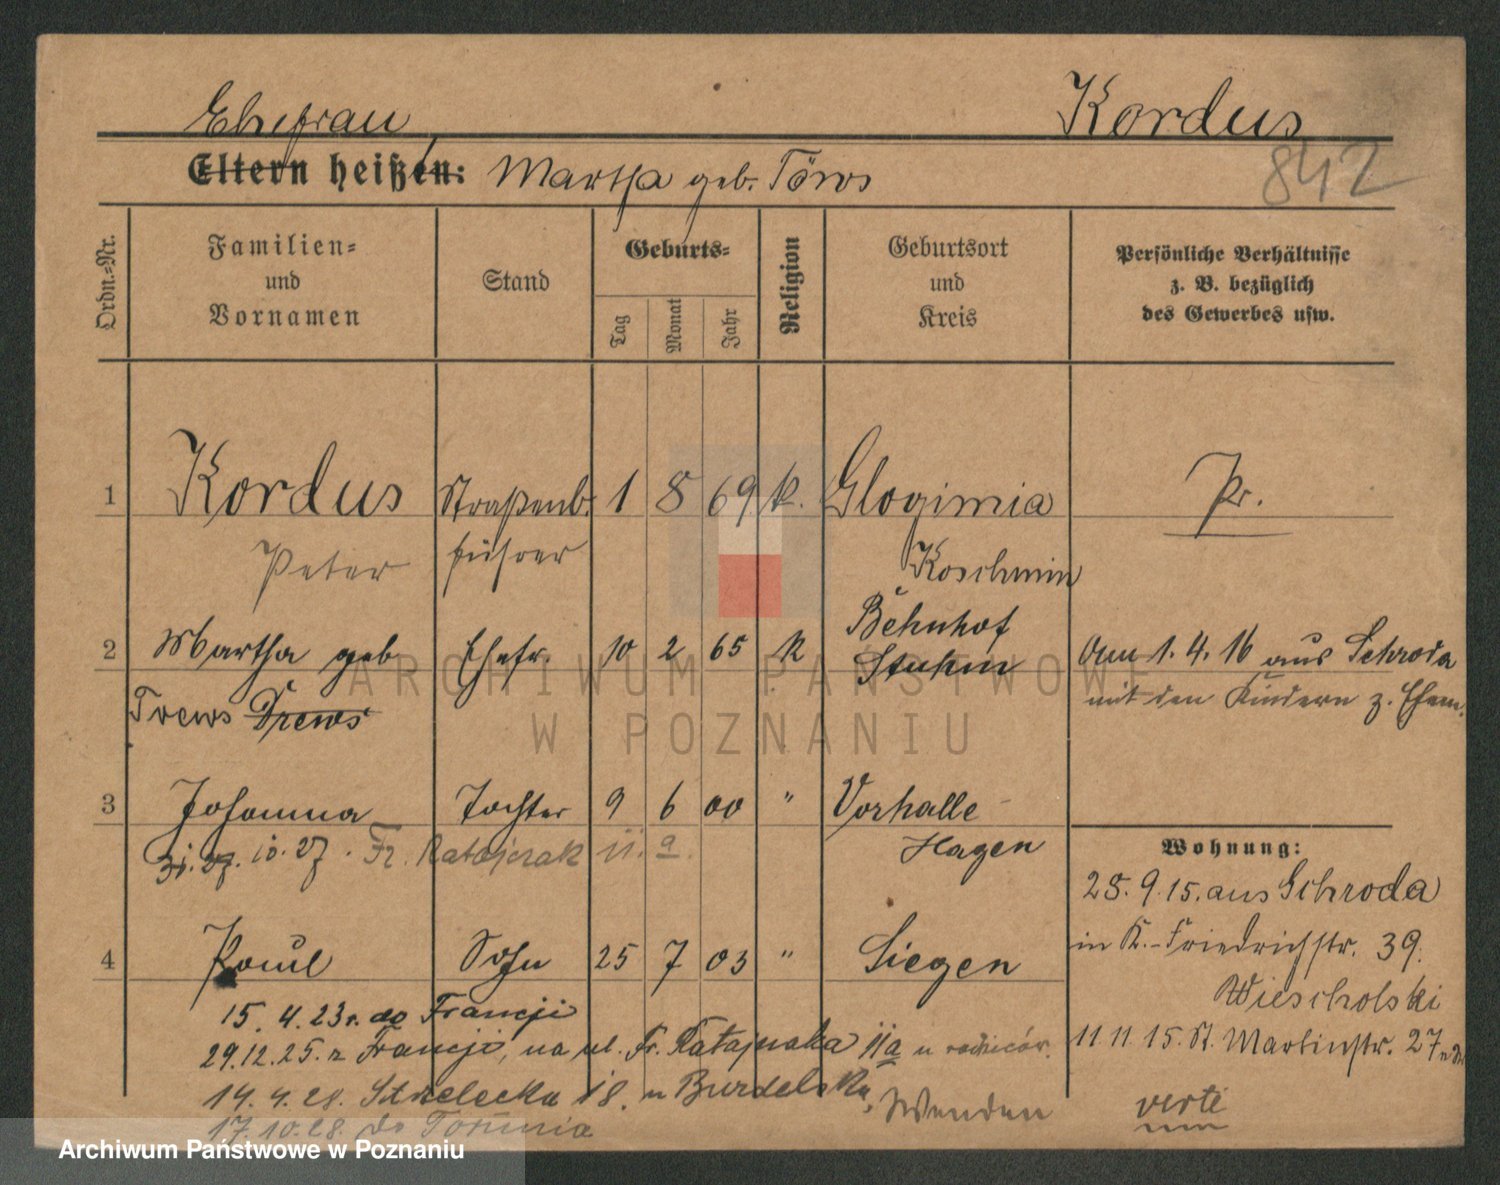 Ehefrau, Kordus
842
Eltern heißen: Martha geb. Törws
Ordn.-Nr.
Familien-
und
Vornamen
Stand
Geburts-
Tag
Monat
Jahr
Religion
Geburtsort
und
Kreis
Persönliche Verhältnisse
z. B. bezüglich
des Gewerbes usw.
1 Kordus Straßenb. 1 8 69 k. Glogimia Pr.
Peter führer Koschmin
Bahnhof
2 Martha geb Ehefr. 10 2 65 k Stuhm Am 1. 4. 16 aus Schroda
Trews Drews mit den Kindern z. Ehem.
3 Johanna Tochter 9 6 00 " Vorhalle
10. 27. Fr. Ratajczak 11. a. Hagen
Wohnung:
28. 9. 15. aus Schroda
in K.-Friedrichstr. 39.
4 Paul Sohn 25 7 03 " Siegen
Wiescholski
15. 4. 23 r. do Francji
11 11 15. St. Martinstr. 27
29. 12. 25. z Francji, na ul. Fr. Ratajczaka 11a u rodziców.
14. 4. 28. Strzelecka 18. u Burdelski,
Wenden
verte
17. 10. 28. do Torunia
ARCHIWUM PAŃSTWOWE
W POZNANIU
Archiwum Państwowe w Poznaniu